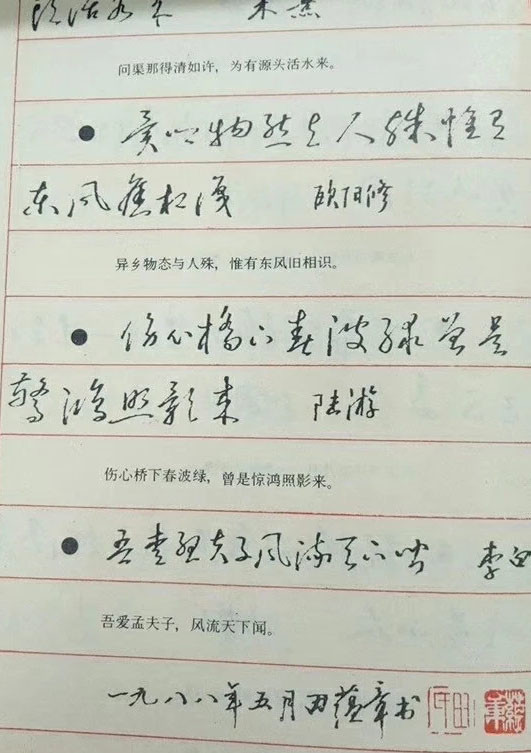 頭活水来 朱熹
问渠那得清如许，为有源头活水来。
● 異鄉物態与人殊惟有
东风舊相識 欧阳修
异乡物态与人殊，惟有东风旧相识。
● 傷心橋下春波綠曾是
驚鴻照影來 陆游
伤心桥下春波绿，曾是惊鸿照影来。
● 吾愛孟夫子風流天下聞 李白
吾爱孟夫子，风流天下闻。
一九八八年五月田蕴章书